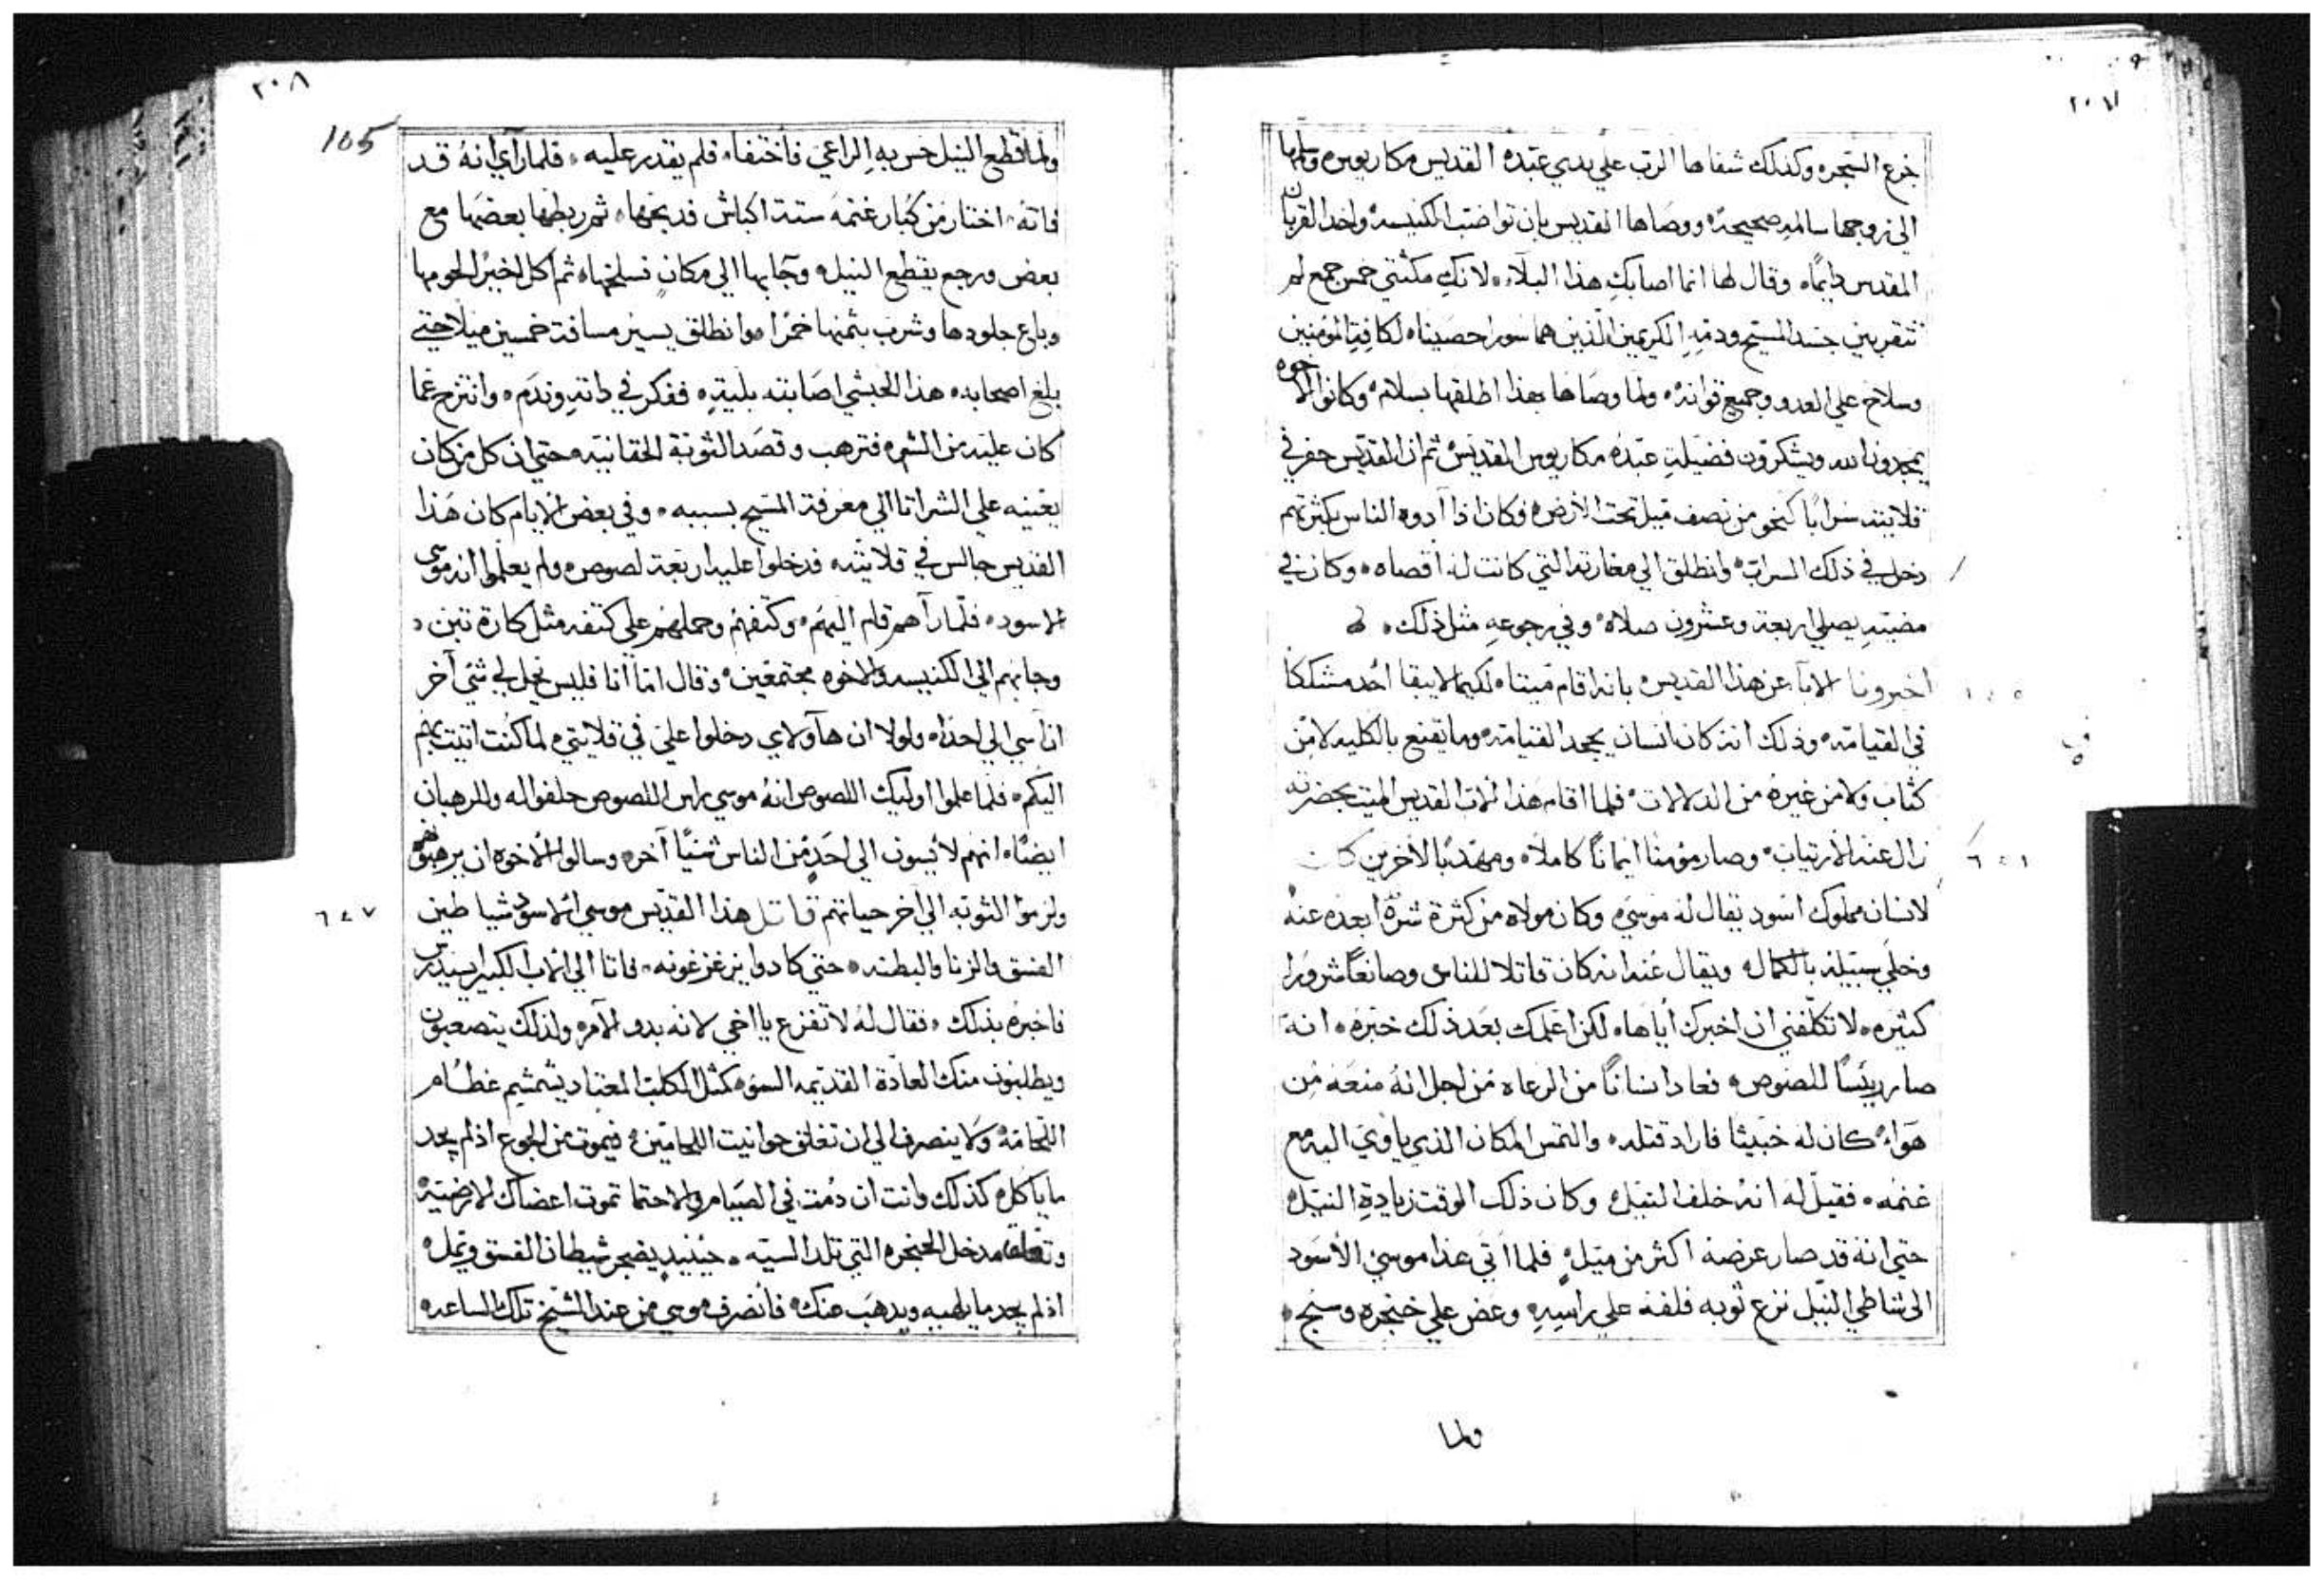 ٢٠٧
خزع السجره وكذلك شفاها الرب علي يدي عبده القديس مكاريوس وسلمها
الي زوجها سالمه صحيحه ووصاها القديس بان تواضب الكنيسه واخد القربان
المقدس دايمًا وقال لها انما اصابكِ هذا البلاء لانكِ مكثتي خمس جمع لم
تتقربين جسد المسيح ودمهِ الكريمين الذين هما سورا حصيناه لكافةِ المؤمنين
وسلاح علي العدو وجميع قواته ولما وصاها بهذا اطلقها بسلام وكانوا الاخوه
يمجدون الله ويشكرون فضيلة عبدُه مكاريوس القديس ثم ان القديس حفر في
قلايته سرابًا كنحو من نصف ميل تحت الأرض وكان اذا آدوه الناس بكثرتهم
دخل في ذلك السراب وانطلق الي مغارته التي كانت له اقصاه وكان في
مضيه يصلي اربعة وعشرون صلاه وفي رجوعهِ مثل ذلك
اخبرونا الابا عن هذا القديس بانه اقام ميتاه لكيما لا يبقا احد مشككا
في القيامه وذلك انه كان انسان يجحد القيامه وما يقنع بالكليه لا من
كتاب ولا من غيره من الدلالات فلما اقام هذا الاب القديس الميت بحضرته
زال عنه الارتياب وصار مؤمنا ايمانًا كاملاً ومهذبا لاخرين كان
٦٤٦
لانسان مملوك اسود يقال له موسي وكان مولاه من كثرة شرهُ ابعده عنهُ
وخلي سبيله بالكمال ويقال عنه انه كان قاتلا للناس وصانعًا شرورا
كثيره لا تكلفني ان اخبرك أياها لكن اعلمك بعد ذلك خبره انه
صار رييسًا للصوص فعادا انسانًا من الرعاه من اجل انهُ منعه من
هواه كان له خبيثا فاراد قتله والتمس المكان الذي ياوي اليه مع
غنمه فقيل له انه خلف النيل وكان ذلك الوقت زيادةِ النيل
حتي انه قد صار عرضه اكثر من ميل فلما اتي هذا موسي الأسود
الي شاطي النيل نزع ثوبه فلفه علي راسهِ وعض علي خنجره وسبح
ولما
٢٠٨
165
ولما قطع النيل حس به الراعي فاختفا فلم يقدر عليه فلما رآي انه قد
فاته اختار من كبار غنمه ستة اكباش فدبحها ثم ربطها بعضها مع
بعض ورجع يقطع النيل وجا بها الي مكانٍ فسلخها ثم اكل اخير لحومها
وباع جلودها وشرب بثمنها خمرا وانطلق يسير مسافة خمسين ميلاً حتي
بلغ اصحابه هذا الحبشي اصابته بليه ففكر في داته وندم وانتزح عما
كان عليه من الشره فترهب وقصد التوبة الحقانيه حتي ان كل من كان
يعينه علي الشر اتا الي معرفة المسيح بسببه وفي بعض الايام كان هذا
القديس جالس في قلايته فدخلوا عليه اربعة لصوص ولم يعلموا انه موسي
الاسود فلما رآهم قام اليهم وكتفهم وحملهم علي كتفه مثل كارة تبن
وجا بهم الي الكنيسه والاخوه مجتمعين وقال اما أنا فليس يحل لي شي آخر
ان اسي الي احدا ولولا ان هاولاي دخلوا علي في قلايتي لما كنت اتيت بهم
اليكم فلما علموا اوليك اللصوص انهُ موسي راس اللصوص حلفوا له وللرهبان
ايضًا انهم لا يسون الي احدٍ من الناس شيًا آخر وسالوا الاخوه ان يرهبوهم
ولزموا التوبه الي آخر حياتهم قاتل هذا القديس موسي الاسود شياطين
٦٤٧
الفسق والزنا والبطنه حتي كادوا يزعزعونه فاتا الي الاب الكبير ايسيدرس
فاخبره بذلك فقال له لا تفزع يا اخي لانه بدو الأمر ولذلك يتصعبون
ويطلبون منك العادة القديمه السوه كمثل الكلب المعتاد يشمشم عظام
اللحامه ولا ينصرف الي ان تغلق حوانيت اللحامين فيموت من الجوع اذ لم يجد
ما ياكل كذلك وانت ان دُمت في الصيام والاحتما تموت اعضاك الارضيه
وتغلق مدخل الحنجره التي تلد السيه حينيدٍ يضجر شيطان الفسق ويمل
اذ لم يجد ما يلهيه ويدهب عنك فأنصرف موسي من عند الشيخ تلك الساعه